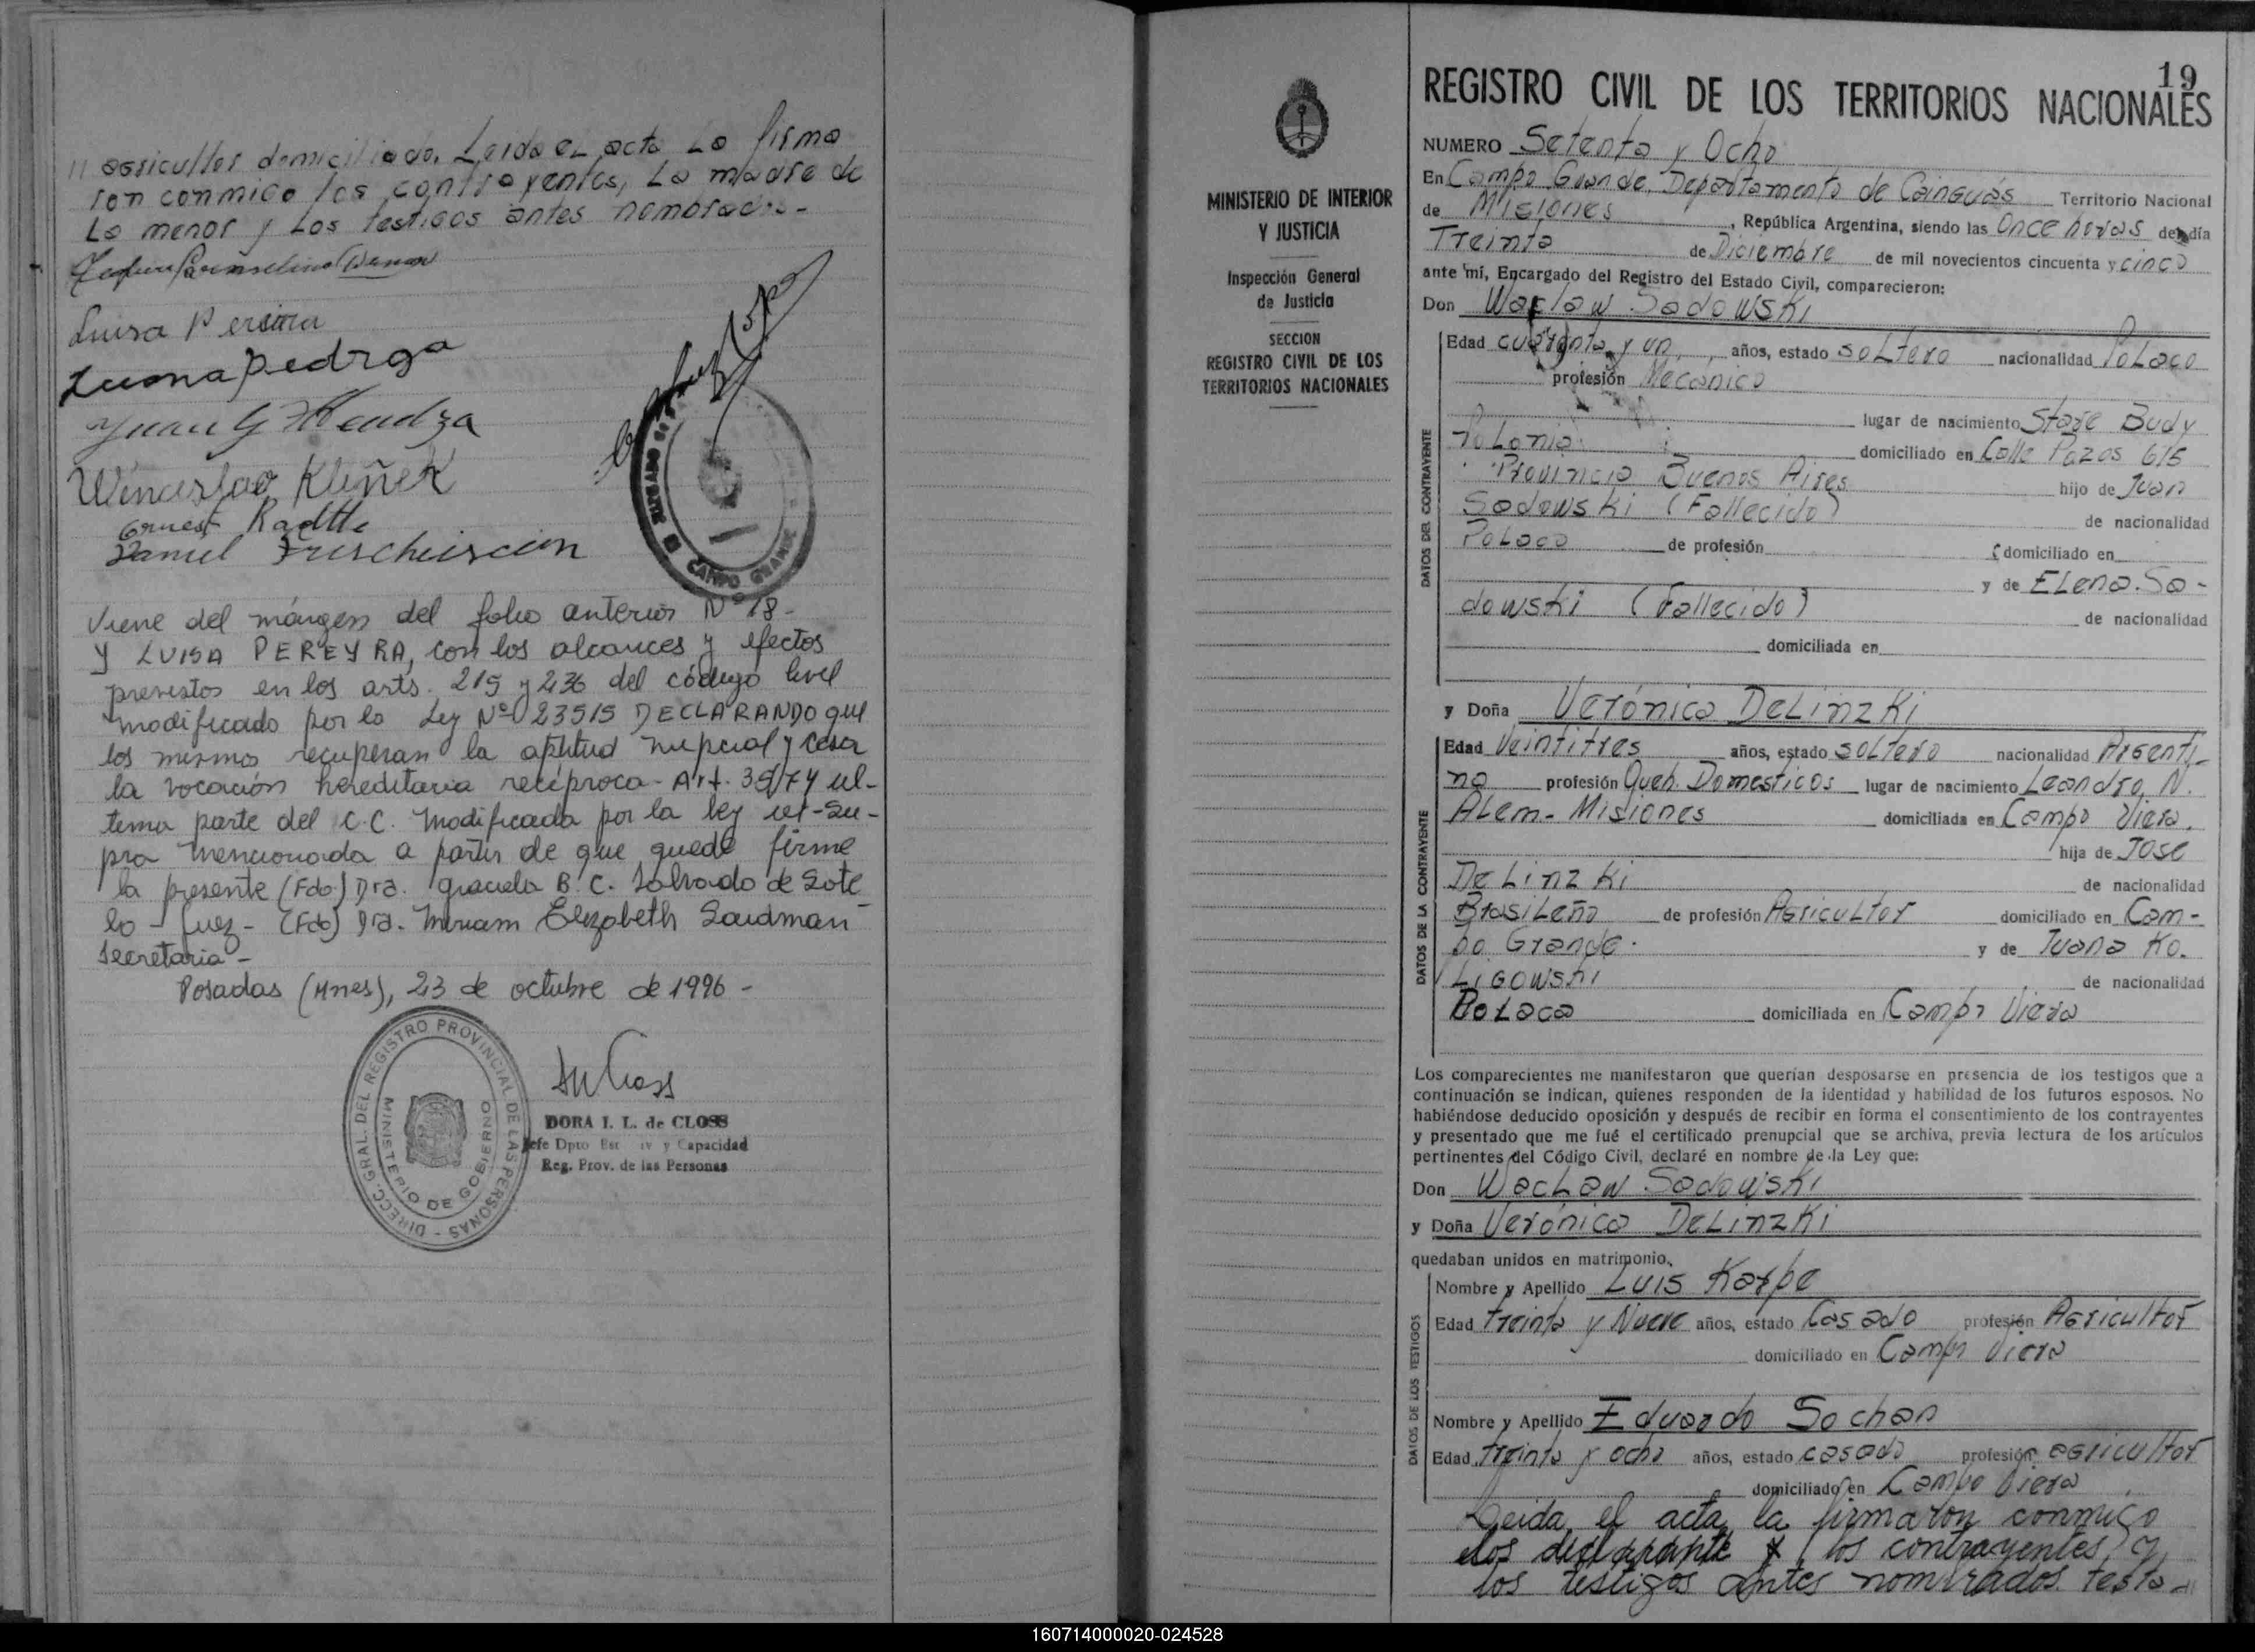 " agricultor domiciliado. Leida el acta La firma
ron conmigo los contrayentes, La madre de
La menor y Los testigos antes nombrados.-
Luisa Pereira
Juana Pedroga
Juan G Mendza
Wenceslao Kliñek
Ernest Radtke
Daniel
JUZGADO DE PAZ
CAMPO GRANDE
Viene del márgen del folio anterior Nº 18-
Y LUISA PEREYRA, con los alcances y efectos
previstos en los arts. 215 y 236 del código Civil
modificado por la Ley Nº 23515 DECLARANDO que
los mismos recuperan la aptitud nupcial y cesa
la vocación hereditaria recíproca- Art. 3574 úl-
tema parte del C.C. modificada por la ley ut-su-
pra mencionada a partir de que quede firme
la presente (Fdo) Dra. Graciela B. C. Salvado de Sote
lo - Juez - (Fdo) Dra. Miriam Elizabeth Saudman
Secretaria -
Posadas (Mnes), 23 de octubre de 1996 -
DIRECC. GRAL. DEL REGISTRO PROVINCIAL DE LAS PERSONAS -
MINISTERIO DE GOBIERNO
DORA I. L. de CLOSS
Jefe Dpto Est iv y Capacidad
Reg. Prov. de las Personas
MINISTERIO DE INTERIOR
Y JUSTICIA
Inspección General
de Justicia
SECCION
REGISTRO CIVIL DE LOS
TERRITORIOS NACIONALES
19
REGISTRO CIVIL DE LOS TERRITORIOS NACIONALES
NUMERO Setenta y Ocho
En Campo Grande, Departamento de Cainguás Territorio Nacional
de Misiones, República Argentina, siendo las Once horas del día
Treinta de Diciembre de mil novecientos cincuenta y cinco
ante mí, Encargado del Registro del Estado Civil, comparecieron:
Don Waclaw Sadowski
DATOS DEL CONTRAYENTE
Edad cuarenta y un, años, estado soltero nacionalidad Polaco
profesión Mecanico
lugar de nacimiento Stare Budy
Polonia domiciliado en Calle Pozos 615
Provincia Buenos Aires hijo de Juan
Sadowski (Fallecido) de nacionalidad
Polaco de profesión domiciliado en
y de Elena. Sa-
dowski (Fallecido) de nacionalidad
domiciliada en
y Doña Verónica Delinzki
DATOS DE LA CONTRAYENTE
Edad Veintitres años, estado soltero nacionalidad Argenti-
na profesión Queh. Domesticos lugar de nacimiento Leandro. N.
Alem- Misiones domiciliada en Campo Viera.
hija de Jose
Delinzki de nacionalidad
Brasileño de profesión Agricultor domiciliado en Cam-
po Grande. y de Juana Ko.
Ligowski de nacionalidad
Polaca domiciliada en Campo Viera
Los comparecientes me manifestaron que querían desposarse en presencia de los testigos que a
continuación se indican, quienes responden de la identidad y habilidad de los futuros esposos. No
habiéndose deducido oposición y después de recibir en forma el consentimiento de los contrayentes
y presentado que me fué el certificado prenupcial que se archiva, previa lectura de los artículos
pertinentes del Código Civil, declaré en nombre de la Ley que:
Don Waclaw Sadowski
y Doña Verónica Delinzki
quedaban unidos en matrimonio.
DATOS DE LOS TESTIGOS
Nombre y Apellido Luis Karpe
Edad treinta y Nueve años, estado Casado profesión Agricultor
domiciliado en Campo Viera
Nombre y Apellido Eduardo Sochan
Edad treinta y ocho años, estado casado profesión agricultor
domiciliado en Campo Viera
Leida el acta, la firmaron conmigo
los declarante y los contrayentes, y
los testigos antes nombrados. testa-"
160714000020-024528